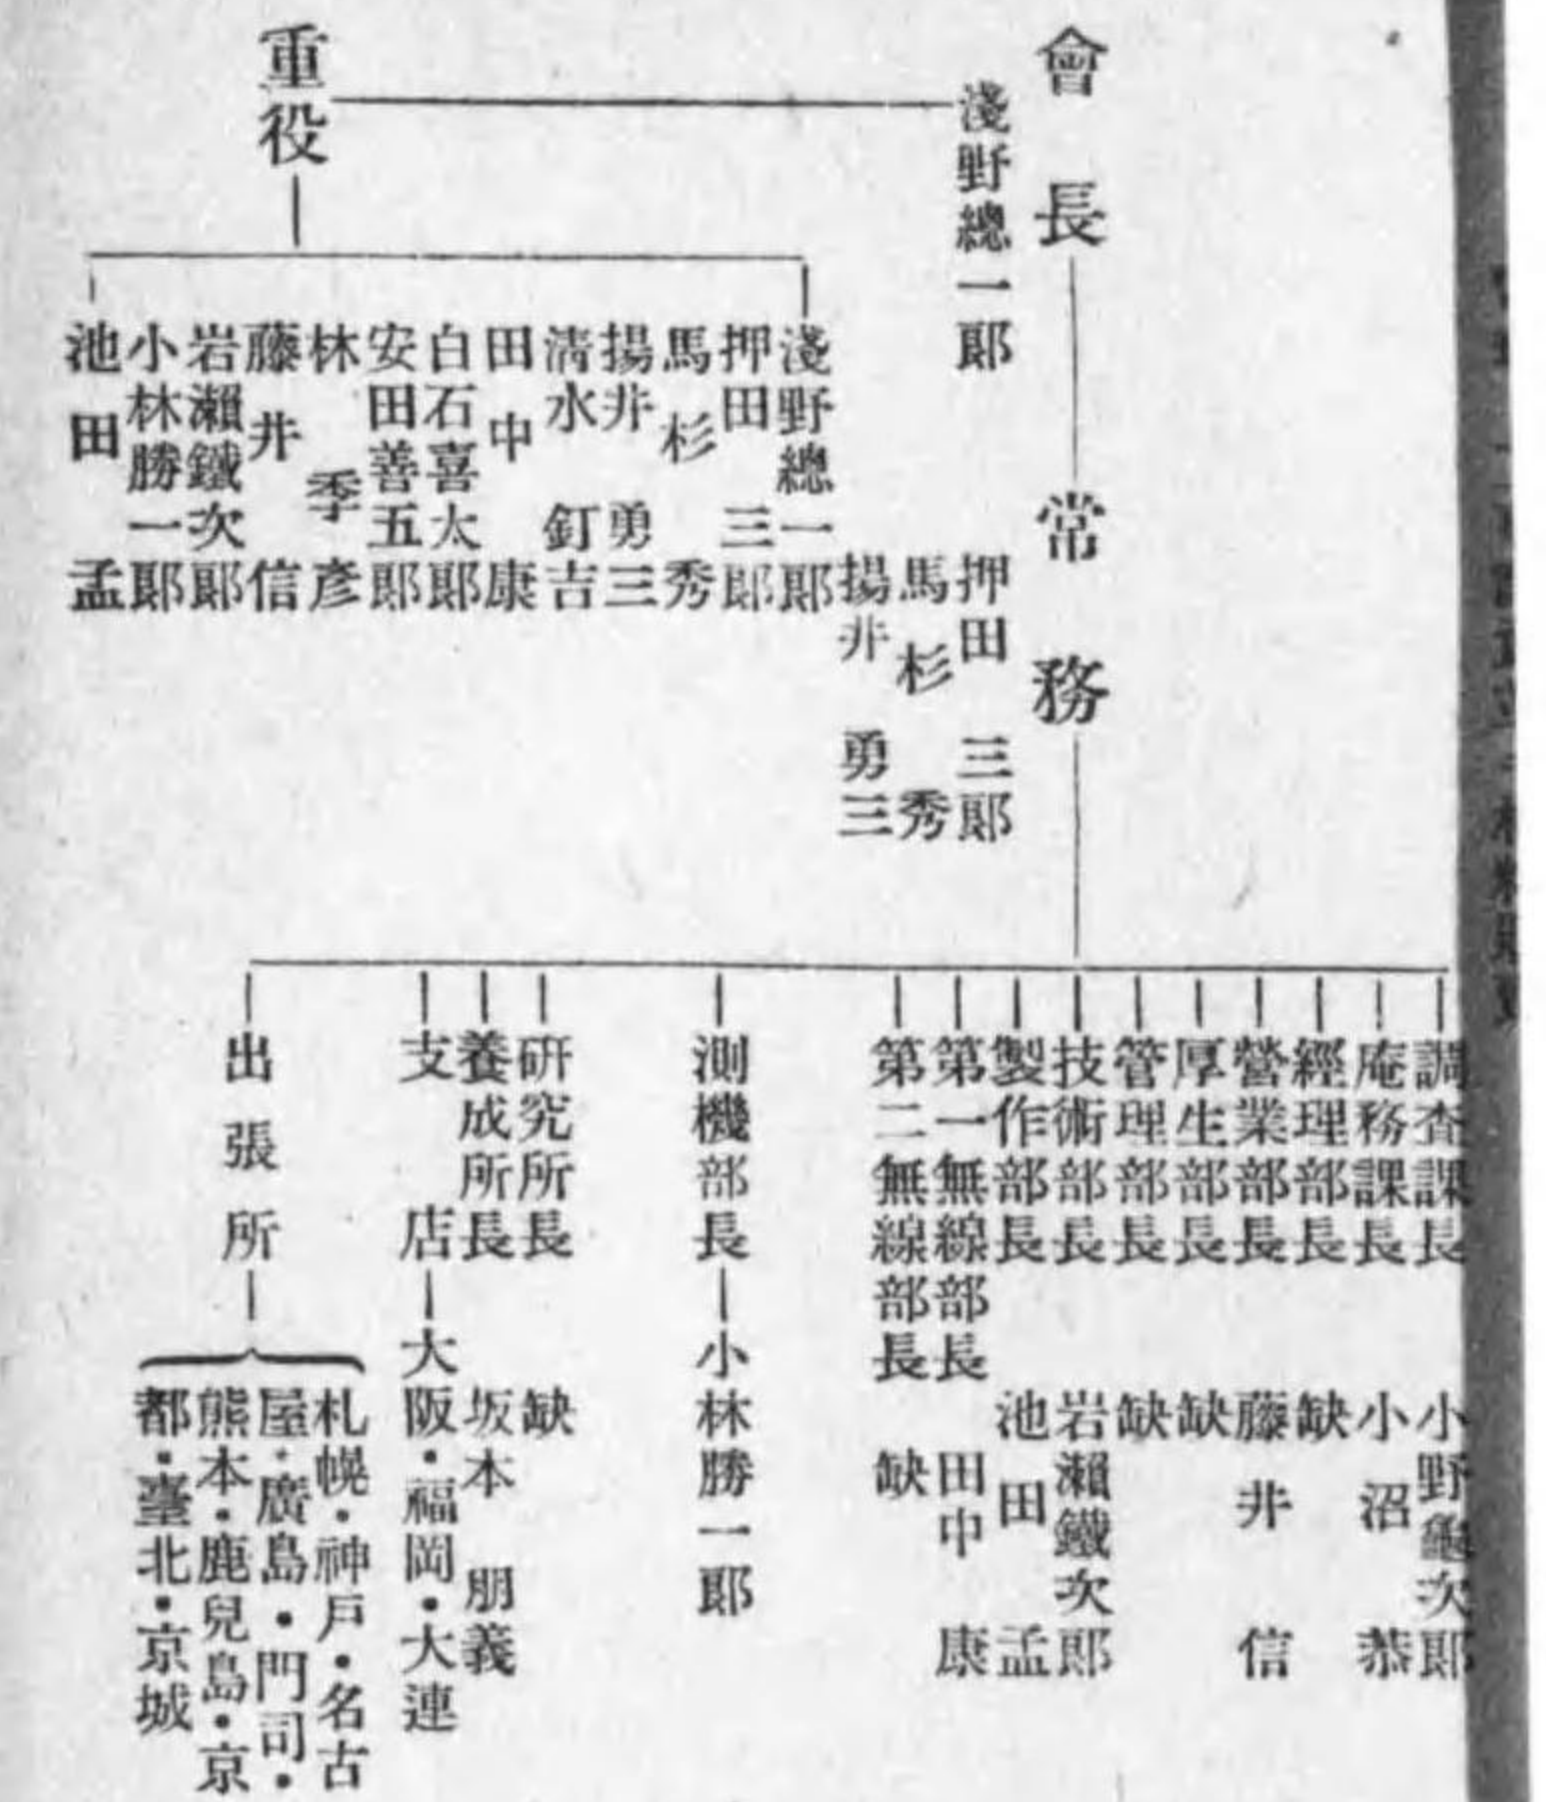 會長
淺野總一郞
常務
押田三郞
馬杉秀
揚井勇三
重役
淺野總一郞
押田三郞
馬杉秀
揚井勇三
淸水釘吉
田中康
白石喜太郞
安田善五郞
林季彥
藤井信
岩瀨鐵次郞
小林勝一郞
池田孟
調査課長 小野龜次郞
庵務課長 小沼恭
經理部長 缺
營業部長 藤井信
厚生部長 缺
管理部長 缺
技術部長 岩瀨鐵次郞
製作部長 池田孟
第一無線部長 田中康
第二無線部長 缺
測機部長 小林勝一郞
硏究所長 缺
養成所長 坂本朋義
支店 大阪・福岡・大連
出張所
札幌・神戶・名古
屋・廣島・門司・
熊本・鹿兒島・京
都・臺北・京城